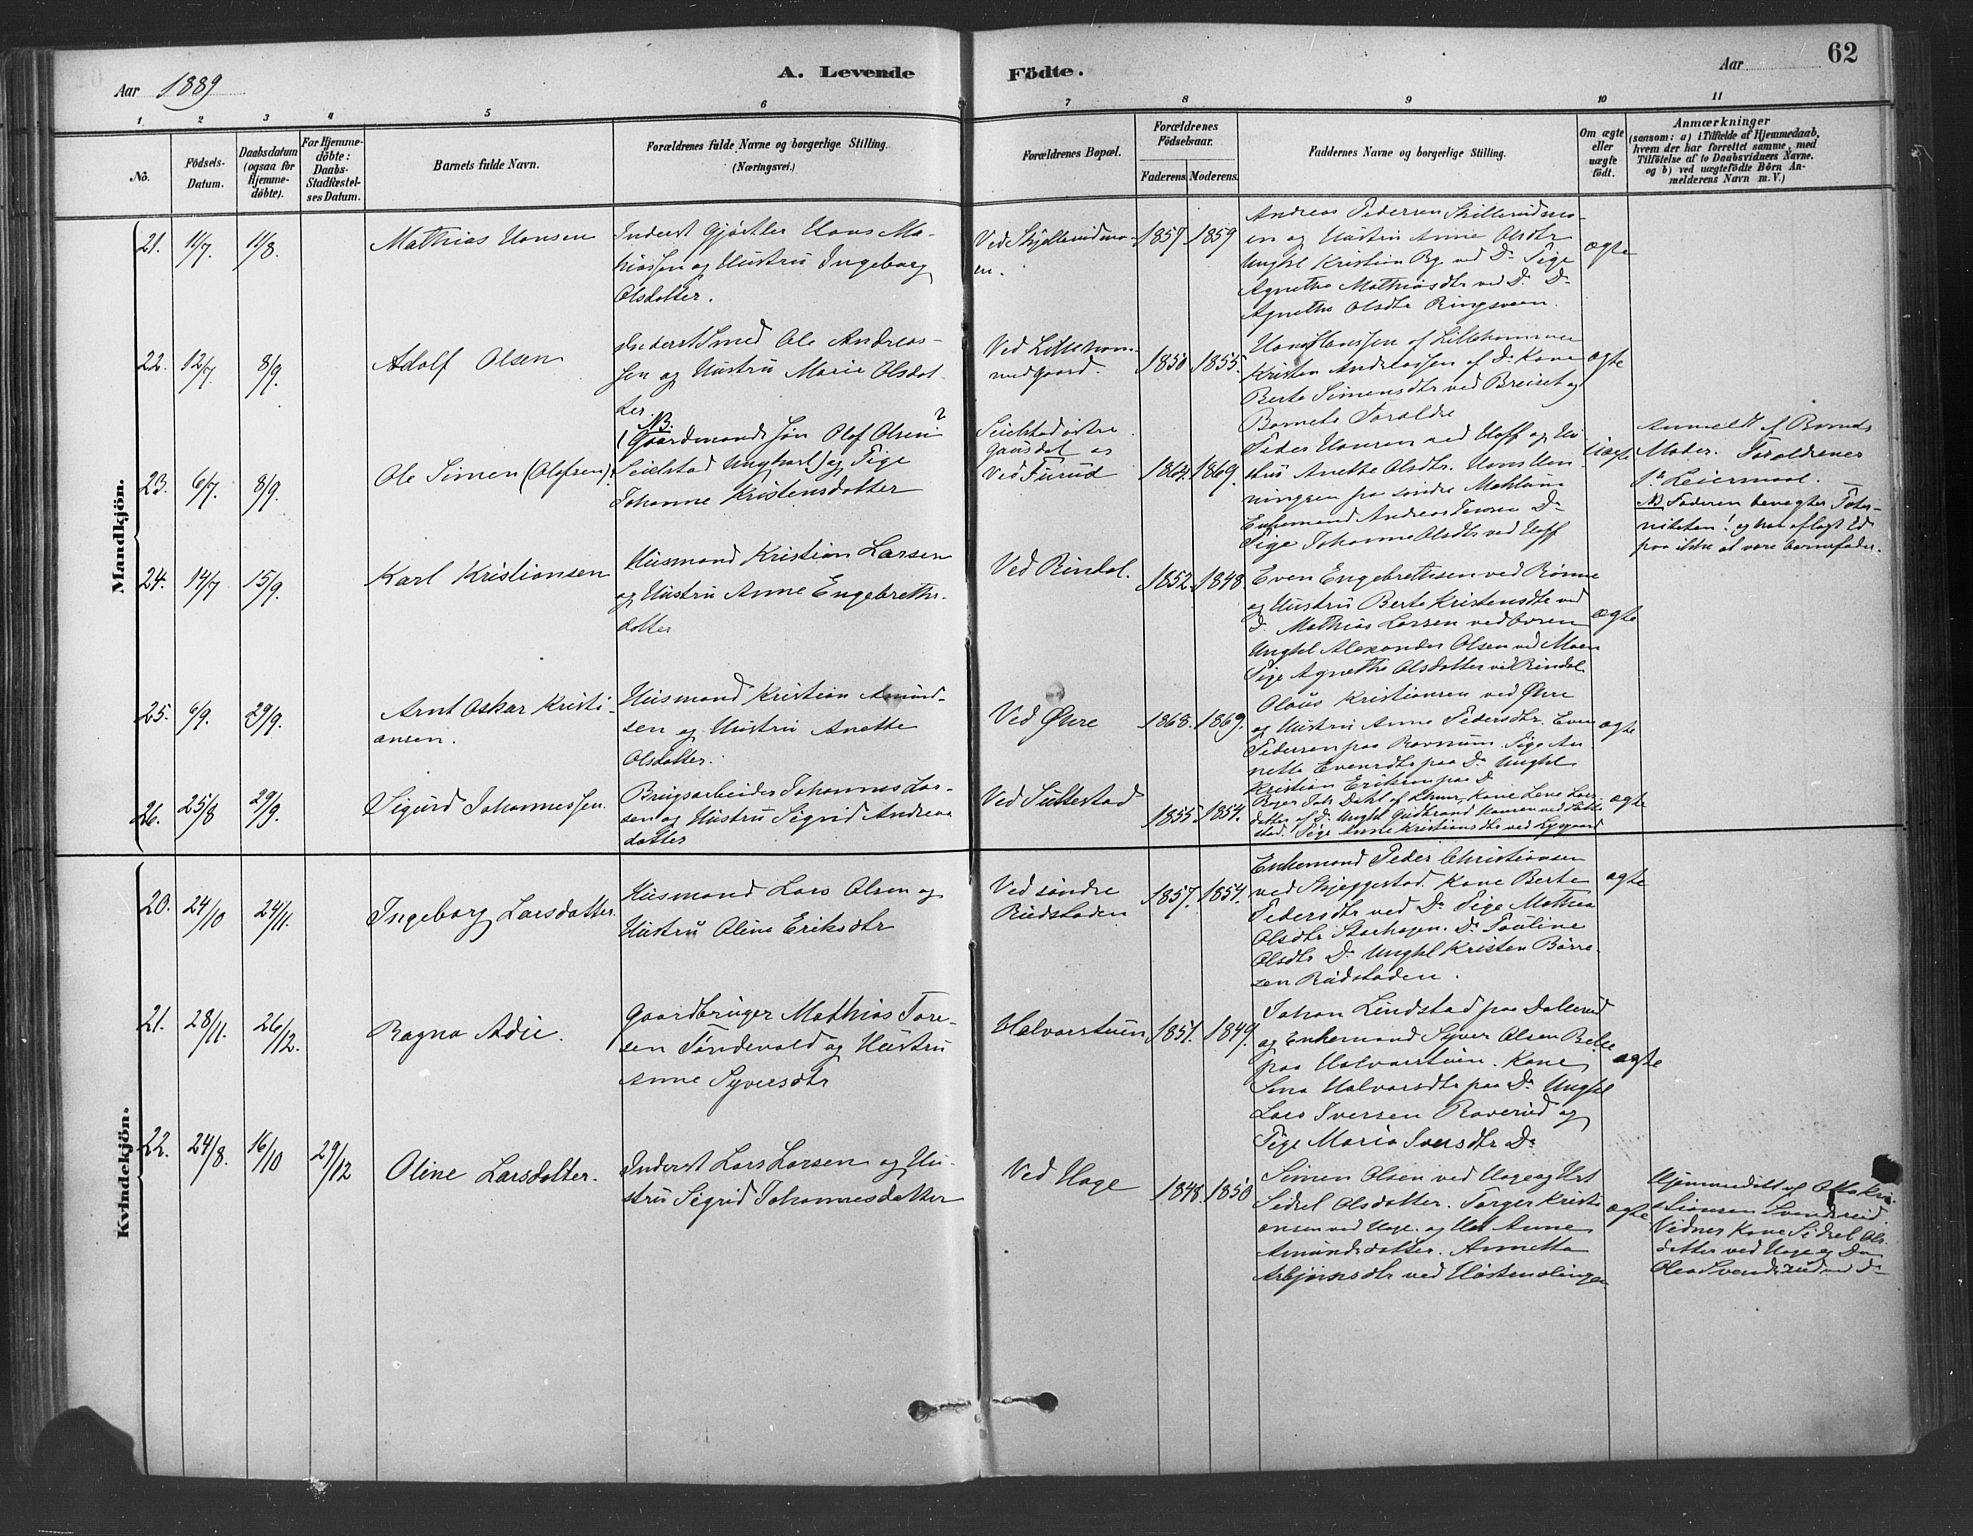 Aar 1889
A. Levende Födte.
Aar
62
1 2 3 4 5 6 7 8 9 10 11
No.
Födsels-Datum.
Daabsdatum (ogsaa for Hjemme-döbte).
For Hjemme-döbte: Daabs-Stadfæstel-ses Datum.
Barnets fulde Navn.
Forældrenes fulde Navne og borgerlige Stilling.
(Næringsvei.)
Forældrenes Bopæl.
Forældrenes Födselsaar.
Faderens. Moderens.
Faddernes Navne og borgerlige Stilling.
Om ægte eller uægte födt.
Anmærkninger
(saasom: a) i Tilfælde af Hjemmedaab,
hvem der har forrettet samme, med
Tilföielse af to Daabsvidners Navne.
og b) ved uægtefödte Börn An-
melderens Navn m. V.)
Mandkjön.
21. 11/7. 11/8.
Mathias Hansen
Inderst Gjørtler Hans Ma-
thiassen og Hustru Ingeborg
Olsdatter.
Ved Skjellerudmo-
en.
1857 1859
Andreas Pedersen Skillerudmo-
en og Hustru Anne Olsdtr
Unghl Kristian Bg. ved Do Pige
Agnethe Mathiasdtr ved Do Do
Agnethe Olsdtr Ringsveen.
ægte
22. 12/7. 8/9.
Adolf Olsen
Inderst Smed Ole Andreas-
sen og Hustru Marie Olsdat-
ter.
Ved Lilleham-
mer Gaard.
1850 1855.
Hans Hanssen af Lillehammer
Kristen Andreassen af Do Kone
Berte Simensdtr ved Breiset og
Barnets Forældre
ægte
23. 6/7. 8/9.
Ole Simen (Olofsen)?
NB.
(Gaardmands Søn Olof Olsen ?
Seielstad Ungkarl) og Pige
Johanne Kristensdatter
Seielstad østre
Gausdal og
Ved Furud
1864. 1869.
Peder Hansen ved Hoff og Hu
stru Anette Olsdtr. Hans Hen
ningsen paa søndre Mæhlum
Enkemand Andreas Jensen Do
Pige Johanne Olsdtr ved Hoff
uægte
Anmeldt af Barnets
Moder. Forældrenes
1ste Leiermaal.
NB Faderen benegter Pater-
niteten! og har aflagt Ed
paa ikke at være barnefader.
24. 14/7 15/9.
Karl Kristiansen
Husmand Kristian Larsen
og Hustru Anne Engebreths-
datter
Ved Rindal.
1852. 1848.
Even Engebrethsen ved Rønne
og Hustru Berte Kristensdtr ved
Do Mathias Larsen ved
Unghl Alexander Olsen ved Moen
Pige Agnethe Olsdatter ved Rindal
ægte
25. 6/9. 29/9.
Arnt Oskar Kristi-
ansen.
Husmand Kristian Amund-
sen og Hustru Anette
Olsdatter.
Ved Øvre
1868. 1869.
Olaus Kristiansen ved Øvre
og Hustru Anne Pedersdtr. Even
Pedersen paa Ravnum. Pige An-
nette Evensdtr paa Do Unghl
Kristian Eriksen paa Do
ægte
26. 25/8 29/9.
Sigurd Johannessen.
Brugsarbeider Johannes Lar-
sen og Hustru Sigrid Andreas
datter
Ved Sultestad
1855 1854.
Dahl af Kone Lene Lars-
datter af Do Unghl Gudbrand Hansen ved Sulte
stad. Pige Anne Kristiansdtr ved Lysgaard
ægte
Kvindekjön.
20. 24/10 24/11.
Ingeborg Larsdatter.
Husmand Lars Olsen og
Hustru Oline Eriksdtr
Ved søndre
Rudstaden
1857. 1854.
Enkemand Peder Christiansen
ved Skjeggestad. Kone Berte
Pedersdtr ved Do Pige Mathea
Olsdtr Storhagen. Do Pauline
Olsdtr Do Unghl Kristen Børre-
sen Rudstaden.
ægte
21. 28/11. 26/12.
Ragna Adie.
Gaardbruger Mathias Tore-
sen Tøndevold og Hustru
Anne Syversdtr
Halvorstuen
1851. 1849.
Johan Lindstad paa Dalerud
og Enkemand Syver Olsen
paa Halvorstuen. Kone
Sina Halvorsdtr paa Do Unghl
Lars Iversen Roverud og
Pige Maria Iversdtr Do
ægte
22. 24/8. 16/10 29/12
Oline Larsdatter.
Inderst Lars Larsen og Hu-
stru Sigrid Johannesdatter
Ved Hage
1848. 1850
Simen Olsen ved Hage og Hust
Sidsel Olsdatter. Torger Kristi
ansen ved Hage. og Hst Anne
Amundsdatter. Annette
Arbjørnsdtr ved
ægte
Hjemmedøbt af Otto Kri-
stiansen Svendsrud.
Vidner Kone Sidsel Ols-
datter ved Hage og Do
Olea Svendsrud ved Do